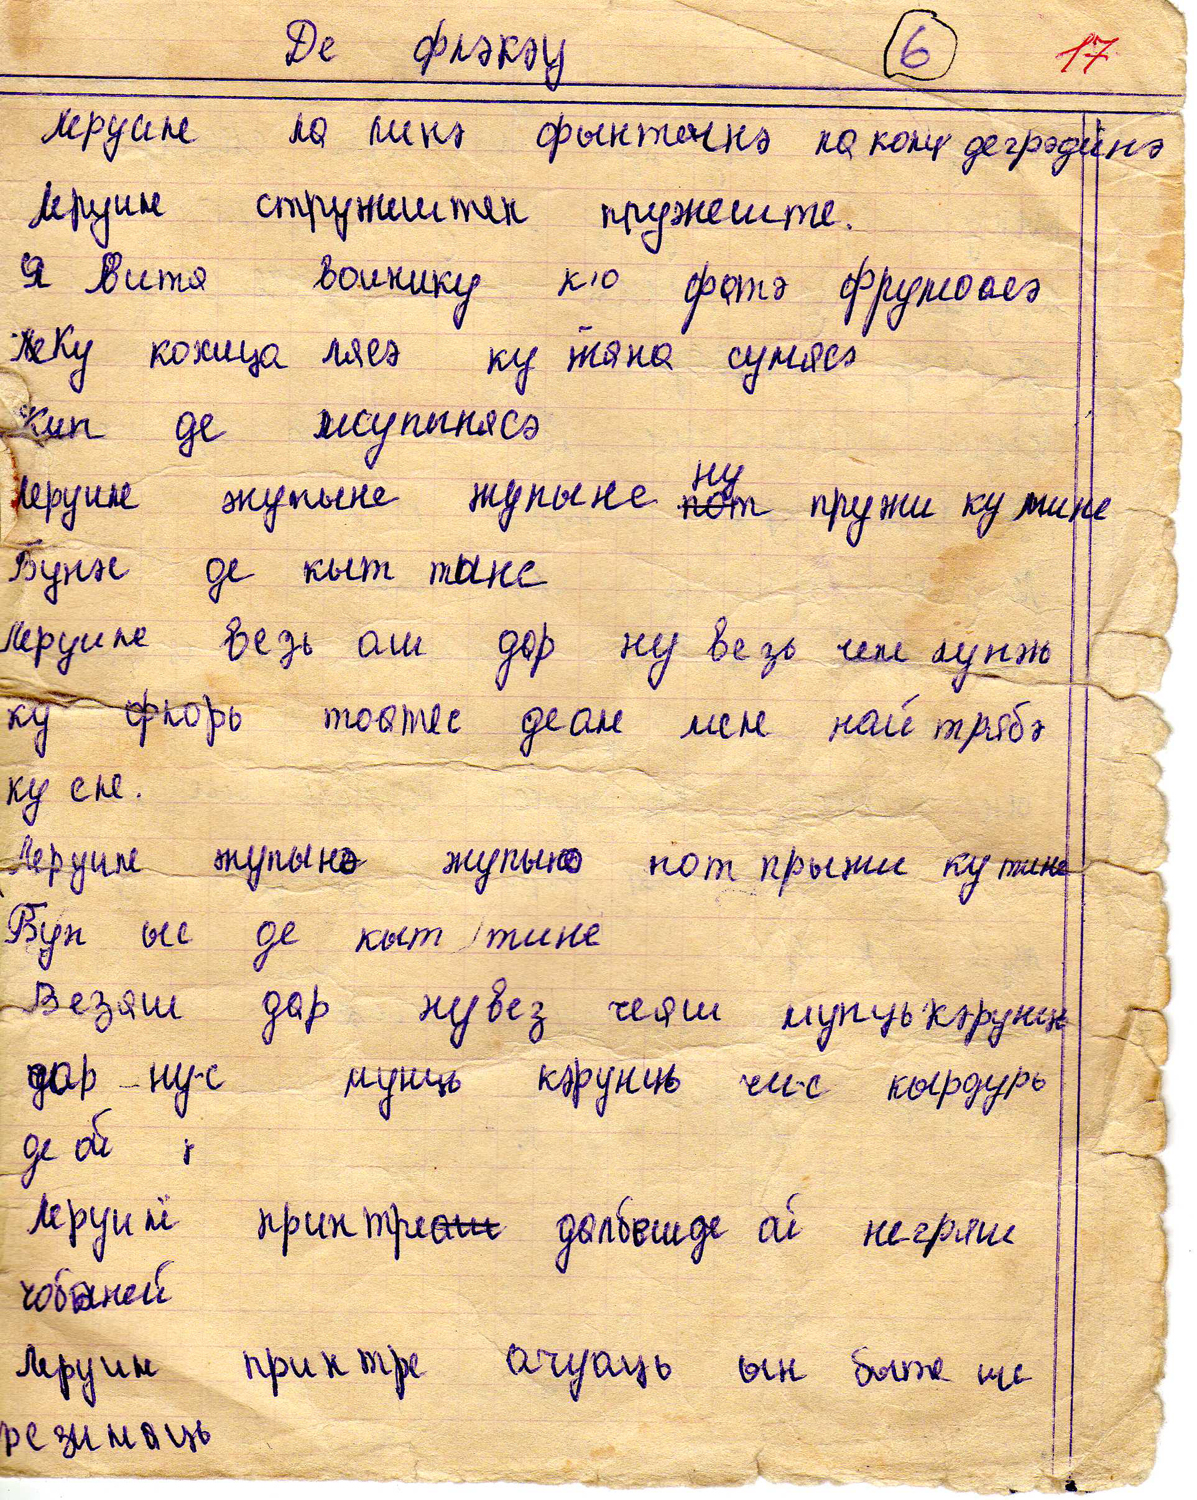 Де флэкэу 6 17
Леруиле ла линэ фынтынэ ла колц деградинэ
Леруиле стружештек пружеште.
Я Витя войнику к'ю фатэ фрумоасэ
Ку кожица лясэ ку тяна сумясэ
Кип де жупынясэ
Леруиле жупыне жупыне ну пружи ку мине
Бунэ де кыт тине
Леруиле везь аш дар ну везь чем лунжь
ку флорь тоатес деале меле най трябэ
ку еле.
Леруиле жупынэ жупынэ пот прыжи ку тине
Бун ыс де кыт тине
Везяш дар нувез чеяш мунць кэрунць
дар ну-с мунць кэрунць чи-с кырдурь
де ой
Леруилё принтре далбешде ой негряш
чобаней
Леруиле принтре ачуаць ын бате ше
резимаць